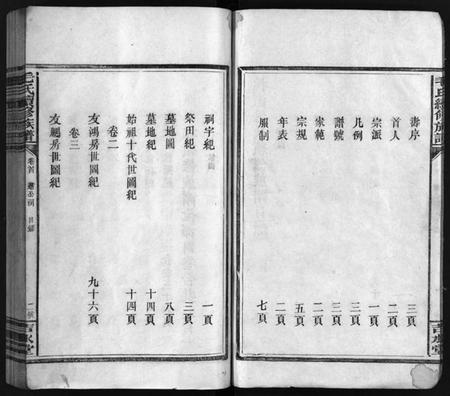 毛氏續修族譜
壽序 三頁
首人 二頁
宗派 一頁
凡例 二頁
譜號 三頁
家範 三頁
宗規 五頁
年表 二頁
服制 七頁
祠宇紀 一頁
祭田紀 三頁
墓地圖 八頁
墓地紀 十四頁
始祖十代世圖紀 十四頁
卷二
友鴻房世圖紀 九十六頁
卷三
友鵾房世圖紀
毛氏續修族譜
卷首
目錄